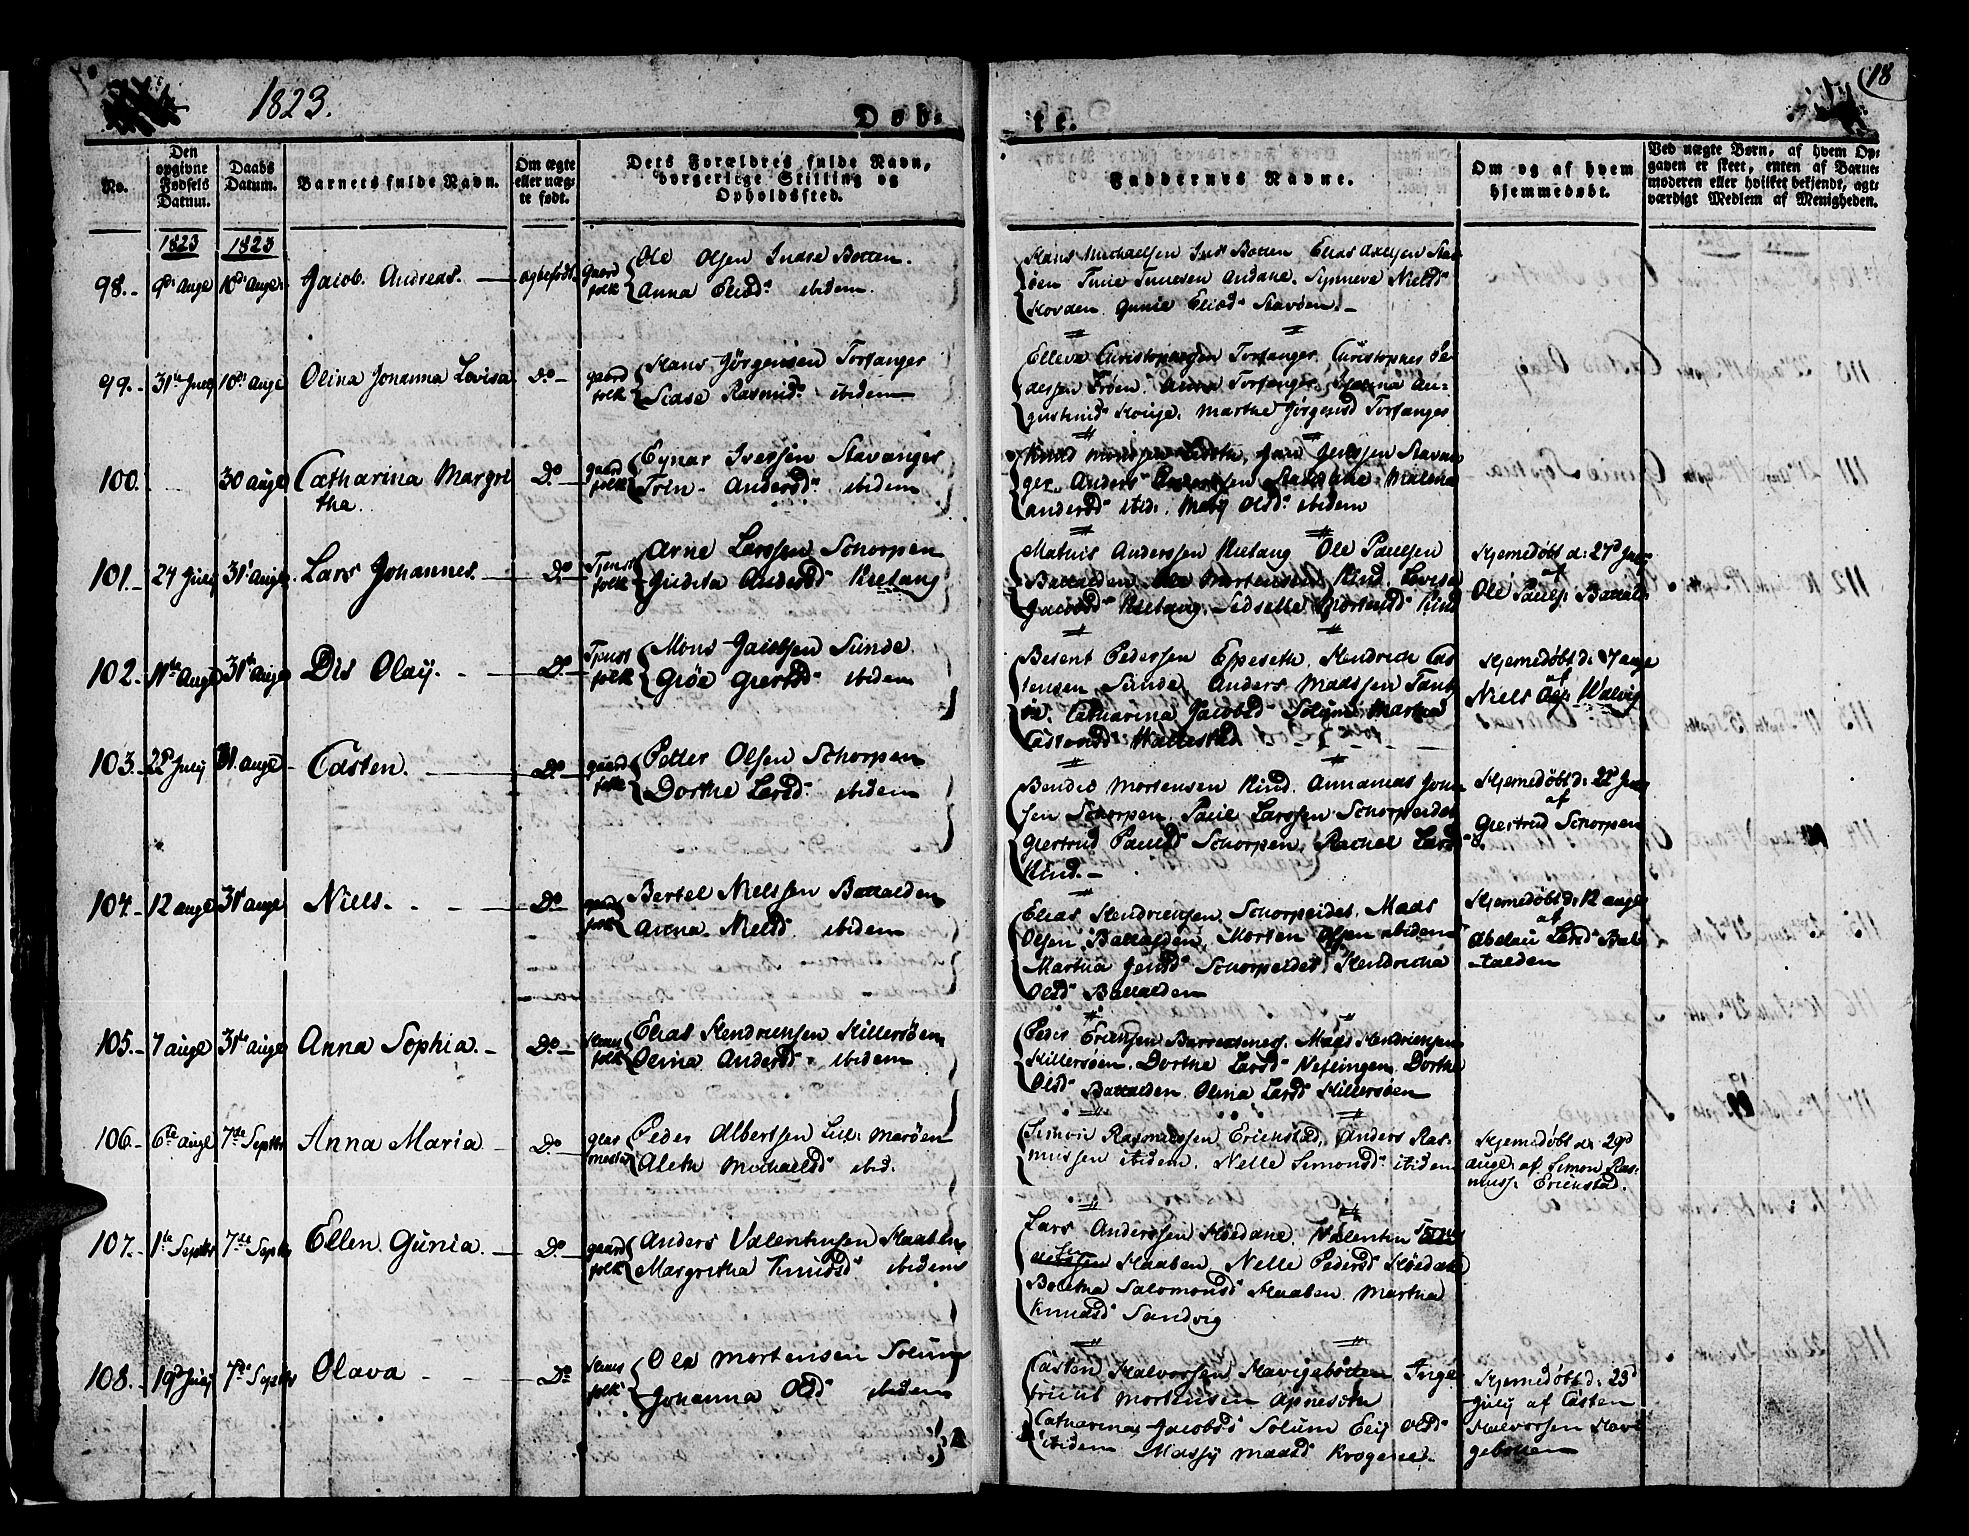 1823.
Døb-
te.
18
No.
Den opgivne Fødsels Datum.
Daabs Datum.
Barnets fulde Navn.
Om ægte eller uægte født.
Dets Forældres fulde Navn, borgerlige Stilling og Opholdssted.
Faddernes Navne.
Om og af hvem hjemmedøbt.
Ved uægte Børn, af hvem Opgaven er skeet, enten af Barnemoderen eller hvilket bekjendt, agtværdigt Medlem af Menigheden.
1823 1823
98. 9de Augs 10de Augs Jacob Andreas. ægtefødt. Gaard folk Ole Olsen Indre Botten.
Anna Eliæd. ibidem.
Hans Michaelsen Inds Botten Elias Axelsen Stav
øen Andane. Synneve Nielsd
Hovden Gunie Eliæd Stavøen.
99. 31te July 10de Augs Olina Johanna Lovisa Do gaard folk Hans Jørgensen Torfanger
Sidse Rasmusd. ibidem
Ellevæ Christophersen Torfanger. Christopher Pe-
dersen Frøen. Anna Torfanger. Au-
gustinid Houje. Marthe Jørgensd Torfanger
100. 30 augs Catharina Margre
tha. Do gaard folk Eynar Iversen Stavanger
Tren Andersd. ibidem
Knud Monssen Jens Jenssen Stavan
ger. Anders Malena
andersd ibid. Mary Olsd. ibidem
101. 24 July 31te Augs Lars Johannes. Do Tjenst folk Arne Larssen Schorpen
Judita Andersd Rietang
Mathis Anderssen Rietang Ole Paulsen
Battalden. Ole Mortensen Kind. Lovisa
Jacobsd Rietang. Sidselle Mortensd Kind
Hjemedøbt d: 27d July
af
Ole Pauls. Battal.
102. 11te Augs 31te Augs Dis Olay. Do Tjenst folk Mons Jacobsen Sunde.
Giøe Giertsd ibidem
Besent Pedersen Espeseth. Hendrich Cas
tensen Sunde, Anders Madssen Tanb
øe. Catharina Jacobsd Solum Martha
Castensd Wattestad.
Hjemedøbt d: 7 augs
af
Niels Walvig
103. 22d July 31 augs Casten. Do gaard folk Petter Olsen Schorpen
Dorthe Larsd. ibidem
Bended Mortensen Kind. Annanias John
sen Schorpen. Paul Larssen Schorpeidet
Giertrud Paulsd Schorpen. Rachel Larsd
Kind.
Hjemedøbt d: 22d July
af
Giertrud Schorpen
104. 12 augs 31te augs Niels. Do gaard folk Bertel Nielssen Battalden
Anna Nielsd. ibidem
Elias Hendricsen. Schorpeidet. Mads
Olsen Battalden, Morten Olsen ibidem
Martha Jensd. Schorpeidet Hendricha
Olsd Battalden
Hjemedøbt d: 12 augs
af
Abelau Larsd Bat
talden
105. 7 augs 31te augs Anna Sophia. Do Huus folk Elias Hendricsen Hillersøen
Olina Andersd. ibidem
Peder Ericksen Barrestenes. Mads Hendricsen
Hillersøen. Dorthe Larsd Dorthe
Olsd Battalden Olina Larsd Hillersøen
106. 6te augs 7de Septbr Anna Maria Do Peder Albertsen Lill: Marøen
Aleth Michaelsd ibid.
Simon Rasmussen Erichstad, Anders Ras-
mussen ibidem. Nelle Simonsd. ibidem
Hjemedøbt d: 29d
augs. af Simon Ras-
muss. Erichstad.
107. 1te Septbr 7de Septbr Ellen Gunia. Do gaard folk Anders Valentinsen Haaben
Margretha Knudsd ibidem
Lars Anderssen Høedane. Valentin
Haaben, Nelle Pedersd Høedane
Beretha Salomonsd Haaben Martha
Knudsd Sandvig
108. 19d July 7de Septbr Olava Do Huus folk Ole Mortensen Solum
Johanna Olsd ibidem
Casten Halvorssen Havigebotten Inge
brict Mortensen Apneseth
Catharina Jacobsd Solum Eli Olsd
ibidem Massy Madsd Krogene.
Hjemedøbt d: 23d
July af Casten
Halvorssen Havi
gebotten